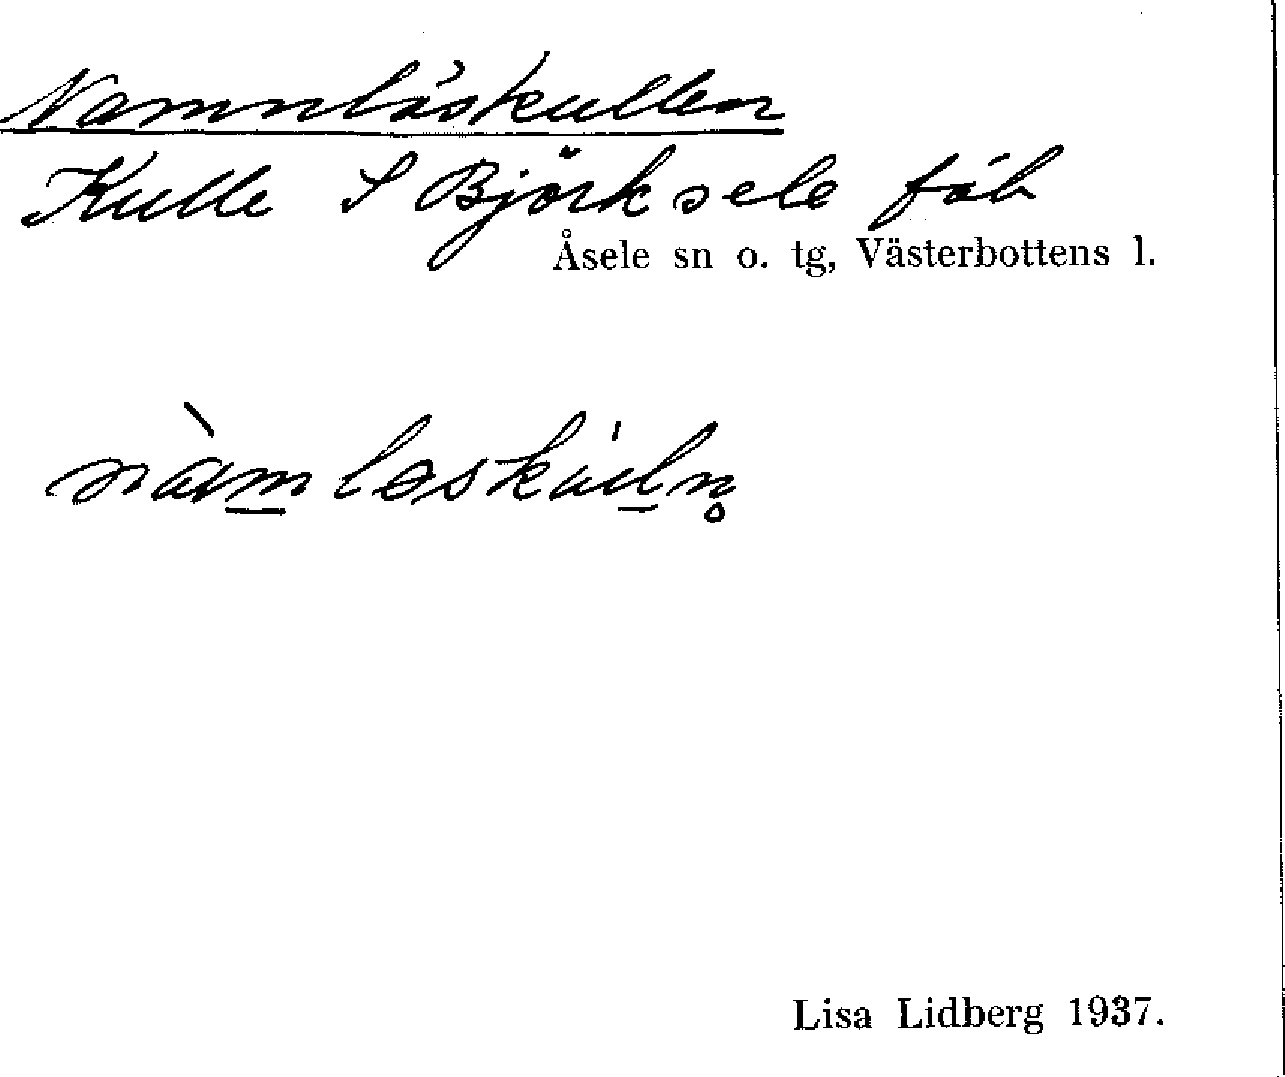 Namnlöskullen
Kulle S Björksele fäb
Åsele sn o. tg, Västerbottens l.
Lisa Lidberg 1937.